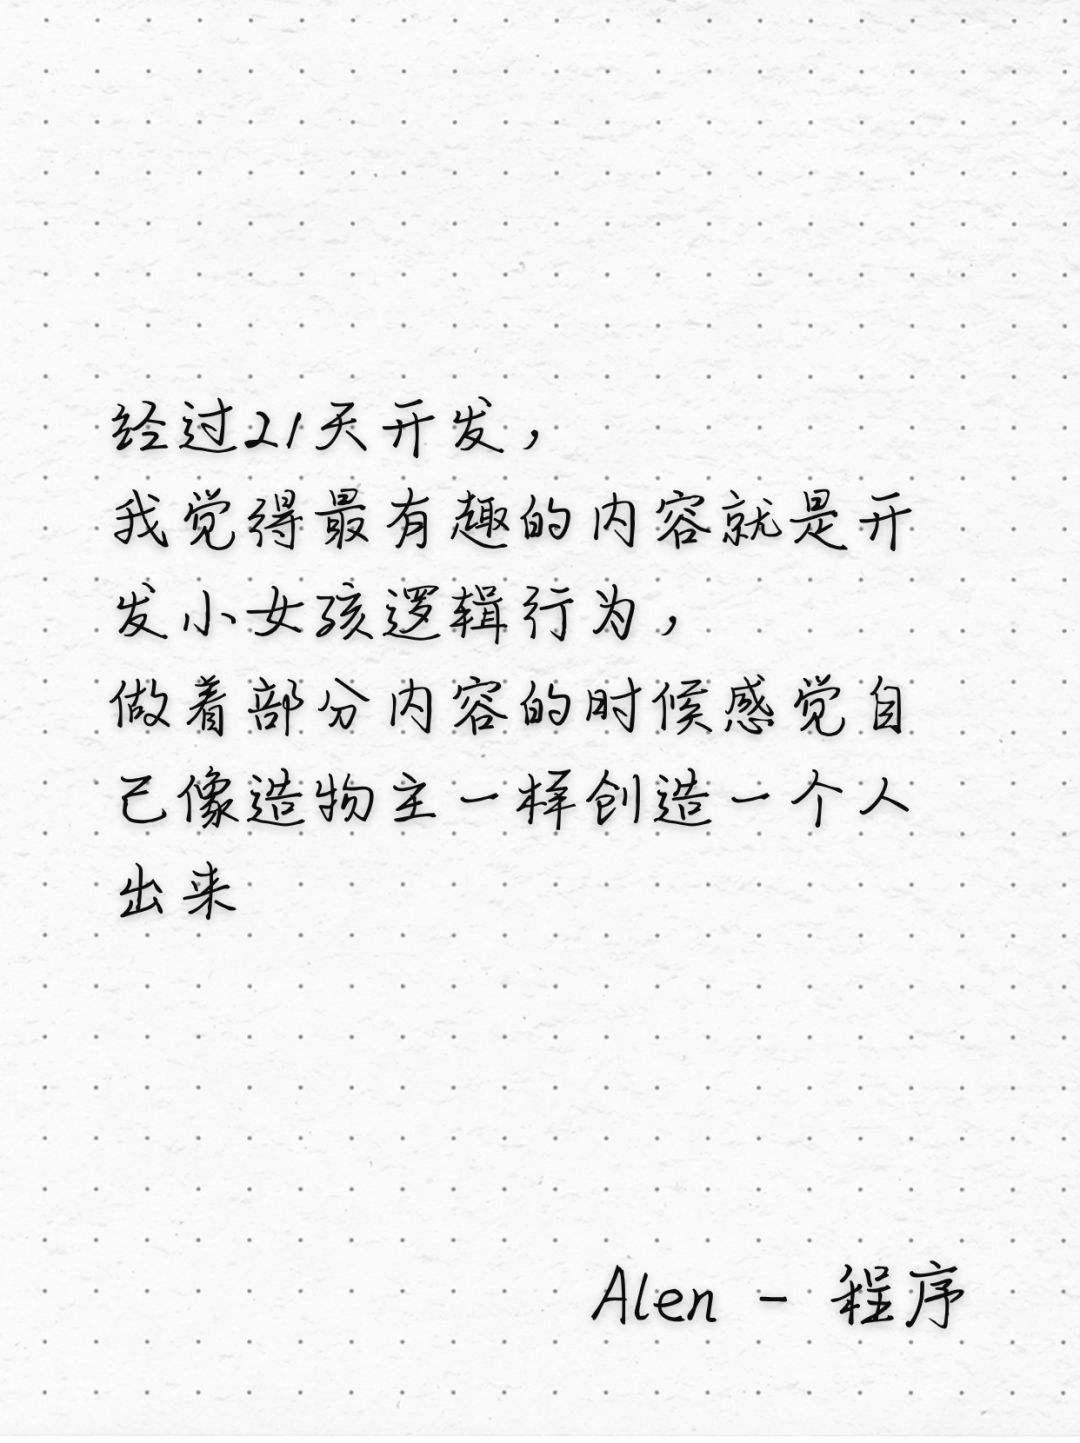 经过21天开发，
我觉得最有趣的内容就是开
发小女孩逻辑行为，
做着部分内容的时候感觉自
己像造物主一样创造一个人
出来
Alen - 程序